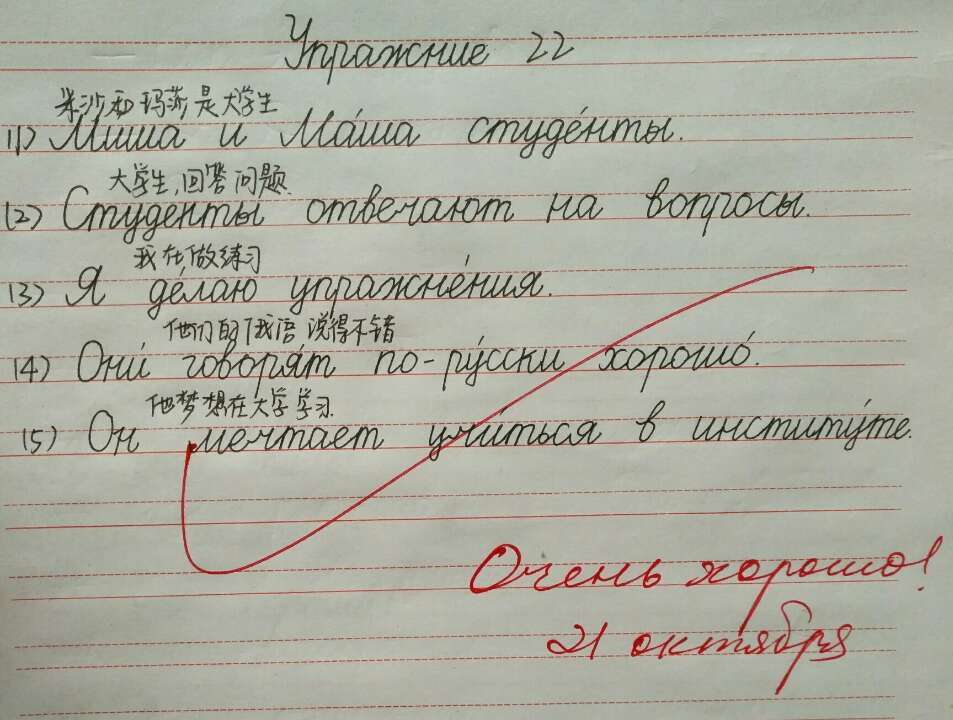 Упражние 22
米沙和玛莎是大学生
(1) Миша и Ма́ша студе́нты.
大学生,回答问题.
(2) Студе́нты отвечают на вопросы.
我在做练习
(3) Я де́лаю упражне́ния.
他们的俄语说得不错
(4) Они́ говоря́т по-ру́сски хорошо́.
他梦想在大学学习.
(5) Он мечтает учи́ться в институ́те.
Очень хорошо!
21 октября